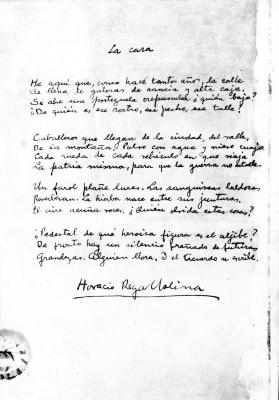 La casa
He aquí que, como hace tantos años, la calle
Se llena de galeras de rancia y alta caja.
Se abre una portezuela crepuscular ¿quién baja?
¿De quién es ese rostro, ese pecho, ese talle?
Caballeros que llegan de la ciudad, del valle,
De la montaña. Polvo con agua y nieve cuaja
Cada rueda de cada vehículo en que viaja
La patria misma, para que la guerra no estalle.
Un farol plañe luces. Las sanguíneas baldosas
Reverberan. La hierba nace entre sus junturas.
El aire acuña voces. ¿Quién olvida estas cosas?
¿Pedestal de qué heroica figura es el aljibe?
De pronto hay un silencio preñado de futuras
Grandezas. Alguien llora. Y el Acuerdo se escribe.
Horacio Rega Molina